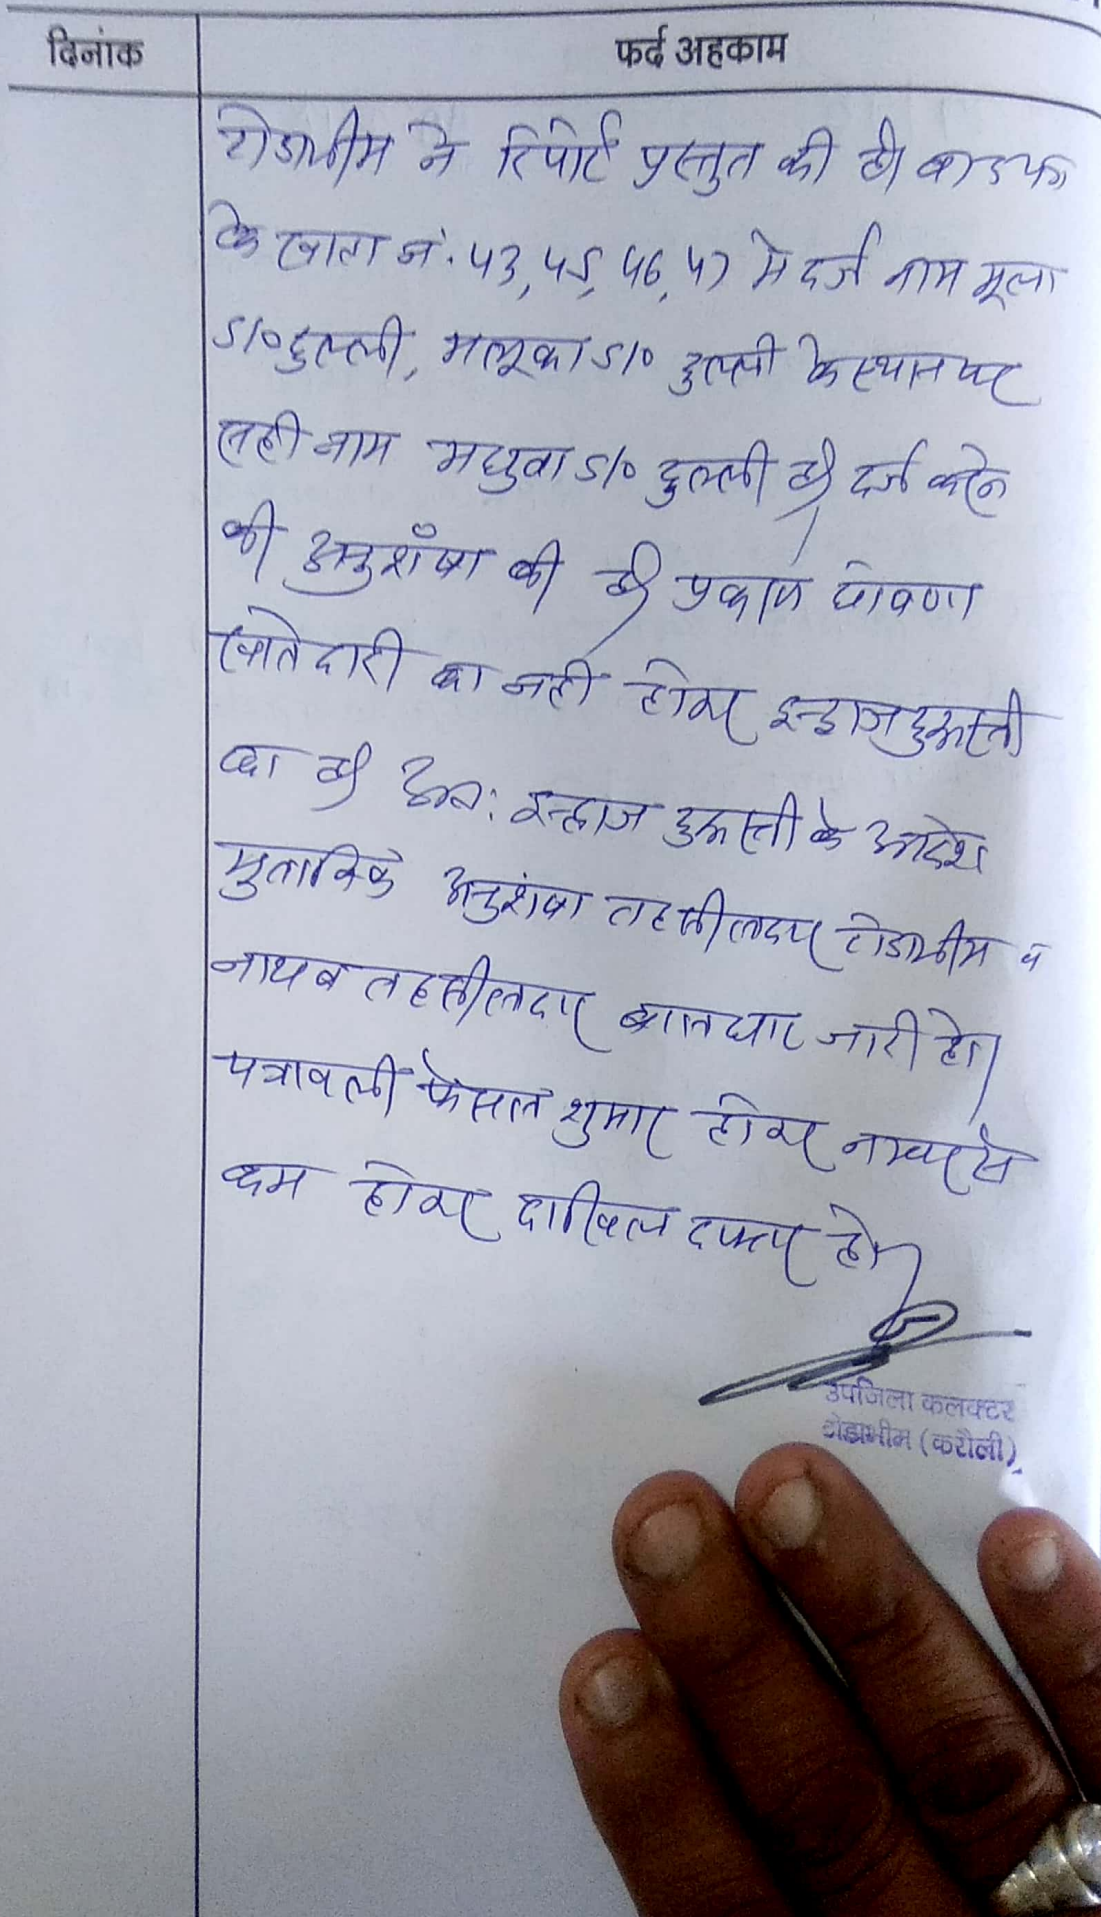 दिनांक
फर्द अहकाम
टोडाभीम ने रिपोर्ट प्रस्तुत की है।
के खाता नं. 43, 45, 46, 47 मे दर्ज नाम मूला
S/० दुल्ली, मलूका S/० दुल्ली के स्थान पर
सही नाम मथुवा S/० दुल्ली है। दर्ज करने
की अनुशंषा की है। प्रकरण घोषणा
खातेदारी का नही होकर इन्द्राज दुरूस्ती
का है। अत: इन्द्राज दुरूस्ती के आदेश
मुताबिक अनुशंषा तहसीलदार टोडाभीम व
नायब तहसीलदार बालघाट जारी हो।
पत्रावली फैसल शुमार होकर नम्बर से
कम होकर दाखिल दफ्तर हो।
उपजिला कलक्टर
टोडाभीम (करौली)